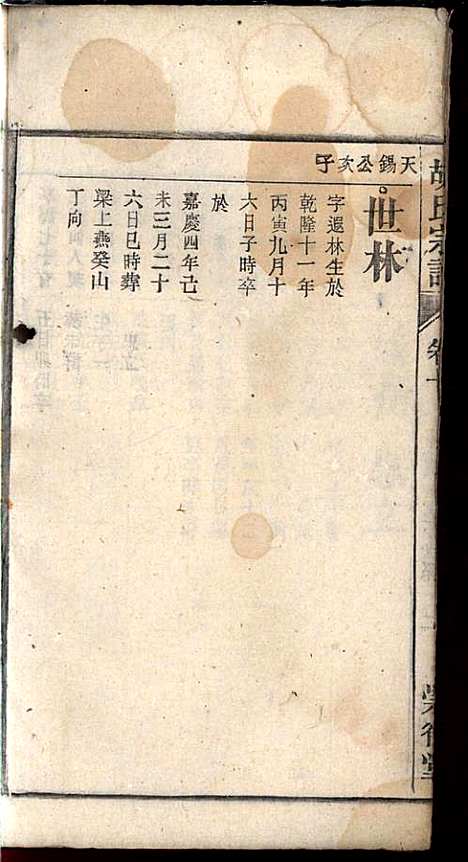 胡氏宗譜
卷十
天錫公次子
世林
字選林生於
乾隆十一年
丙寅九月十
六日子時卒
於
嘉慶四年己
未三月二十
六日巳時葬
梁上燕癸山
丁向